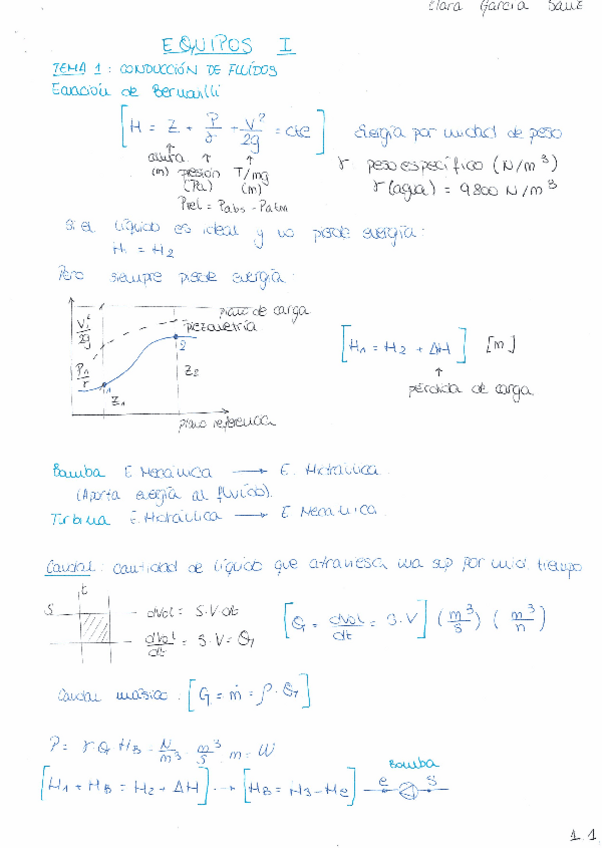 Clara García Sanz
EQUIPOS I
TEMA 1: CONDUCCIÓN DE FLUÍDOS
Ecuación de Bernoulli
[H = Z + P/γ + V²/2g = cte] Energía por unidad de peso
altura (m) presión (Pa) T/mg (m)
Prel = Pabs - Patm
γ peso específico (N/m³)
γ(agua) = 9800 N/m³
Si el líquido es ideal y no pierde energía:
H1 = H2
Pero siempre pierde energía:
plano de carga
piezometría
V1²/2g
P1/γ
1
2
Z1
Z2
plano referencia
[H1 = H2 + ΔH] [m]
pérdida de carga
Bomba E Mecánica → E. Hidráulica.
(Aporta energía al fluído).
Turbina E. Hidráulica → E Mecánica.
Caudal: cantidad de líquido que atraviesa una sup por unid. tiempo
S
dVol = S·V dt
dVol/dt = S·V = Q
[Q = dVol/dt = S·V] (m³/s) (m³/h)
Caudal másico: [G = ṁ = ρ · Q]
P = γ Q HB = N/m³ · m³/s · m = W
[H1 + HB = H2 + ΔH] → [HB = Hs - He]
Bomba
e
s
1.1